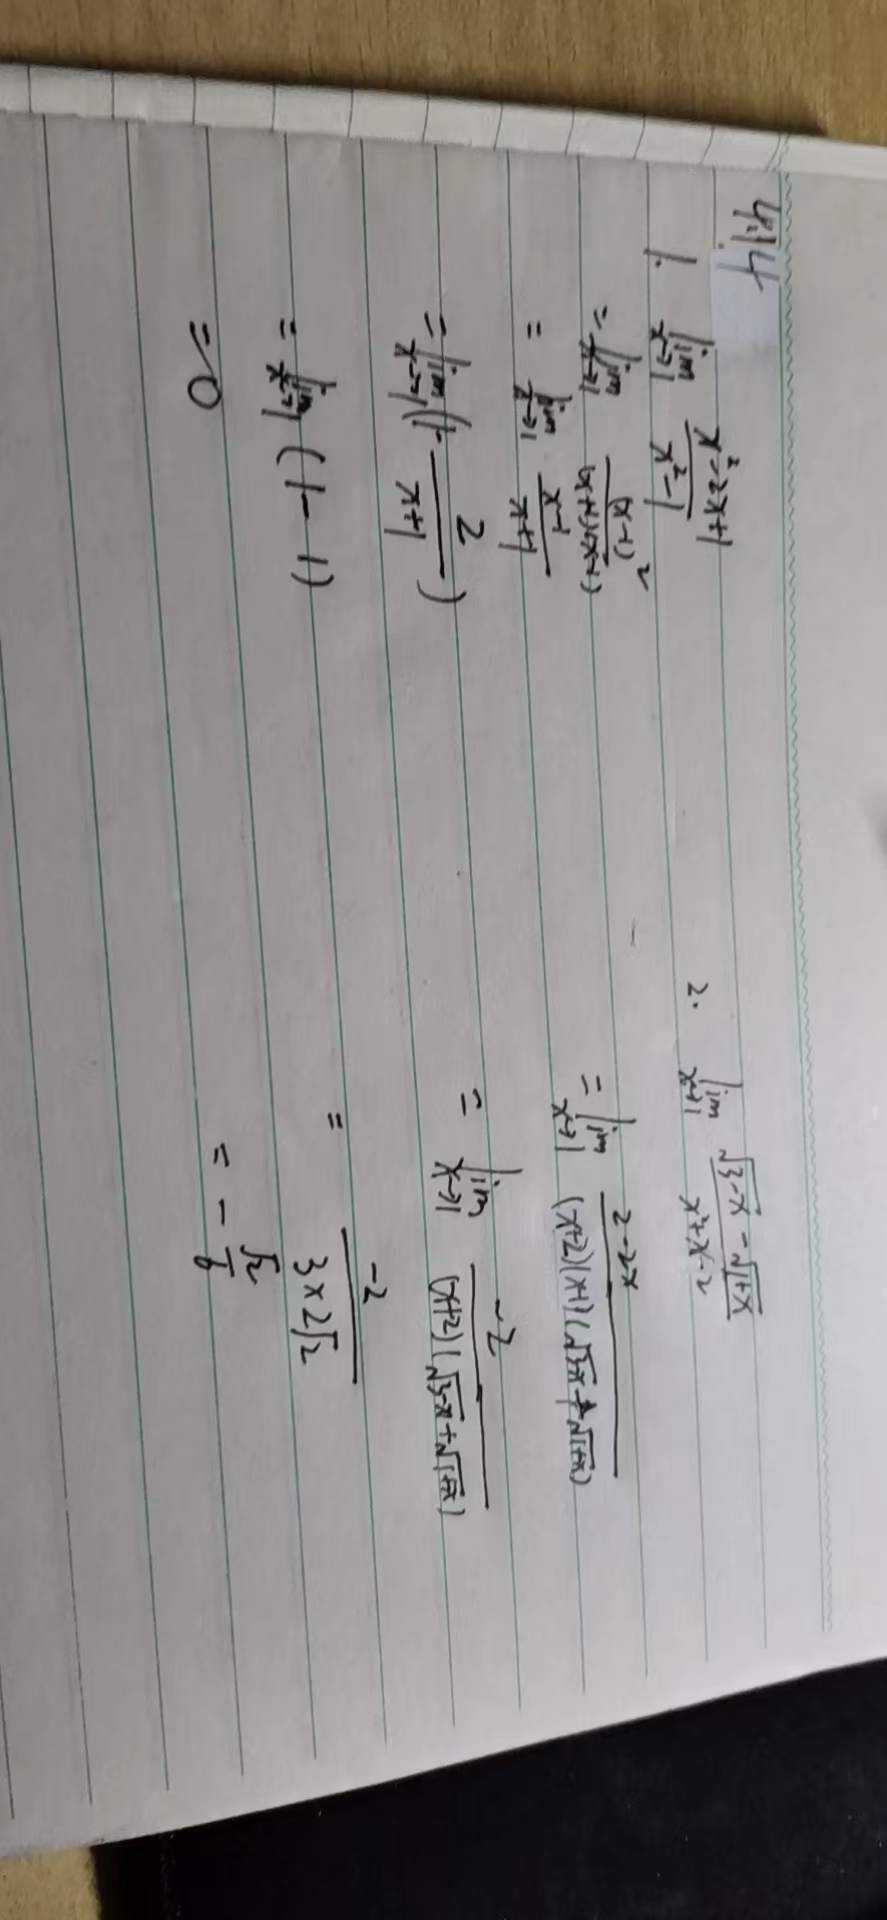 4.14
1. lim x→1 (x²-2x+1)/(x²-1)
= lim x→1 (x-1)²/((x+1)(x-1))
= lim x→1 (x-1)/(x+1)
= lim x→1 (1- 2/(x+1))
= lim x→1 (1-1)
=0
2. lim x→1 (√(3-x) - √(1+x))/(x²+x-2)
= lim x→1 (2-2x)/((x+2)(x-1)(√(3-x)+√(1+x)))
= lim x→1 -2/((x+2)(√(3-x)+√(1+x)))
= -2/(3×2√2)
= -√2/6